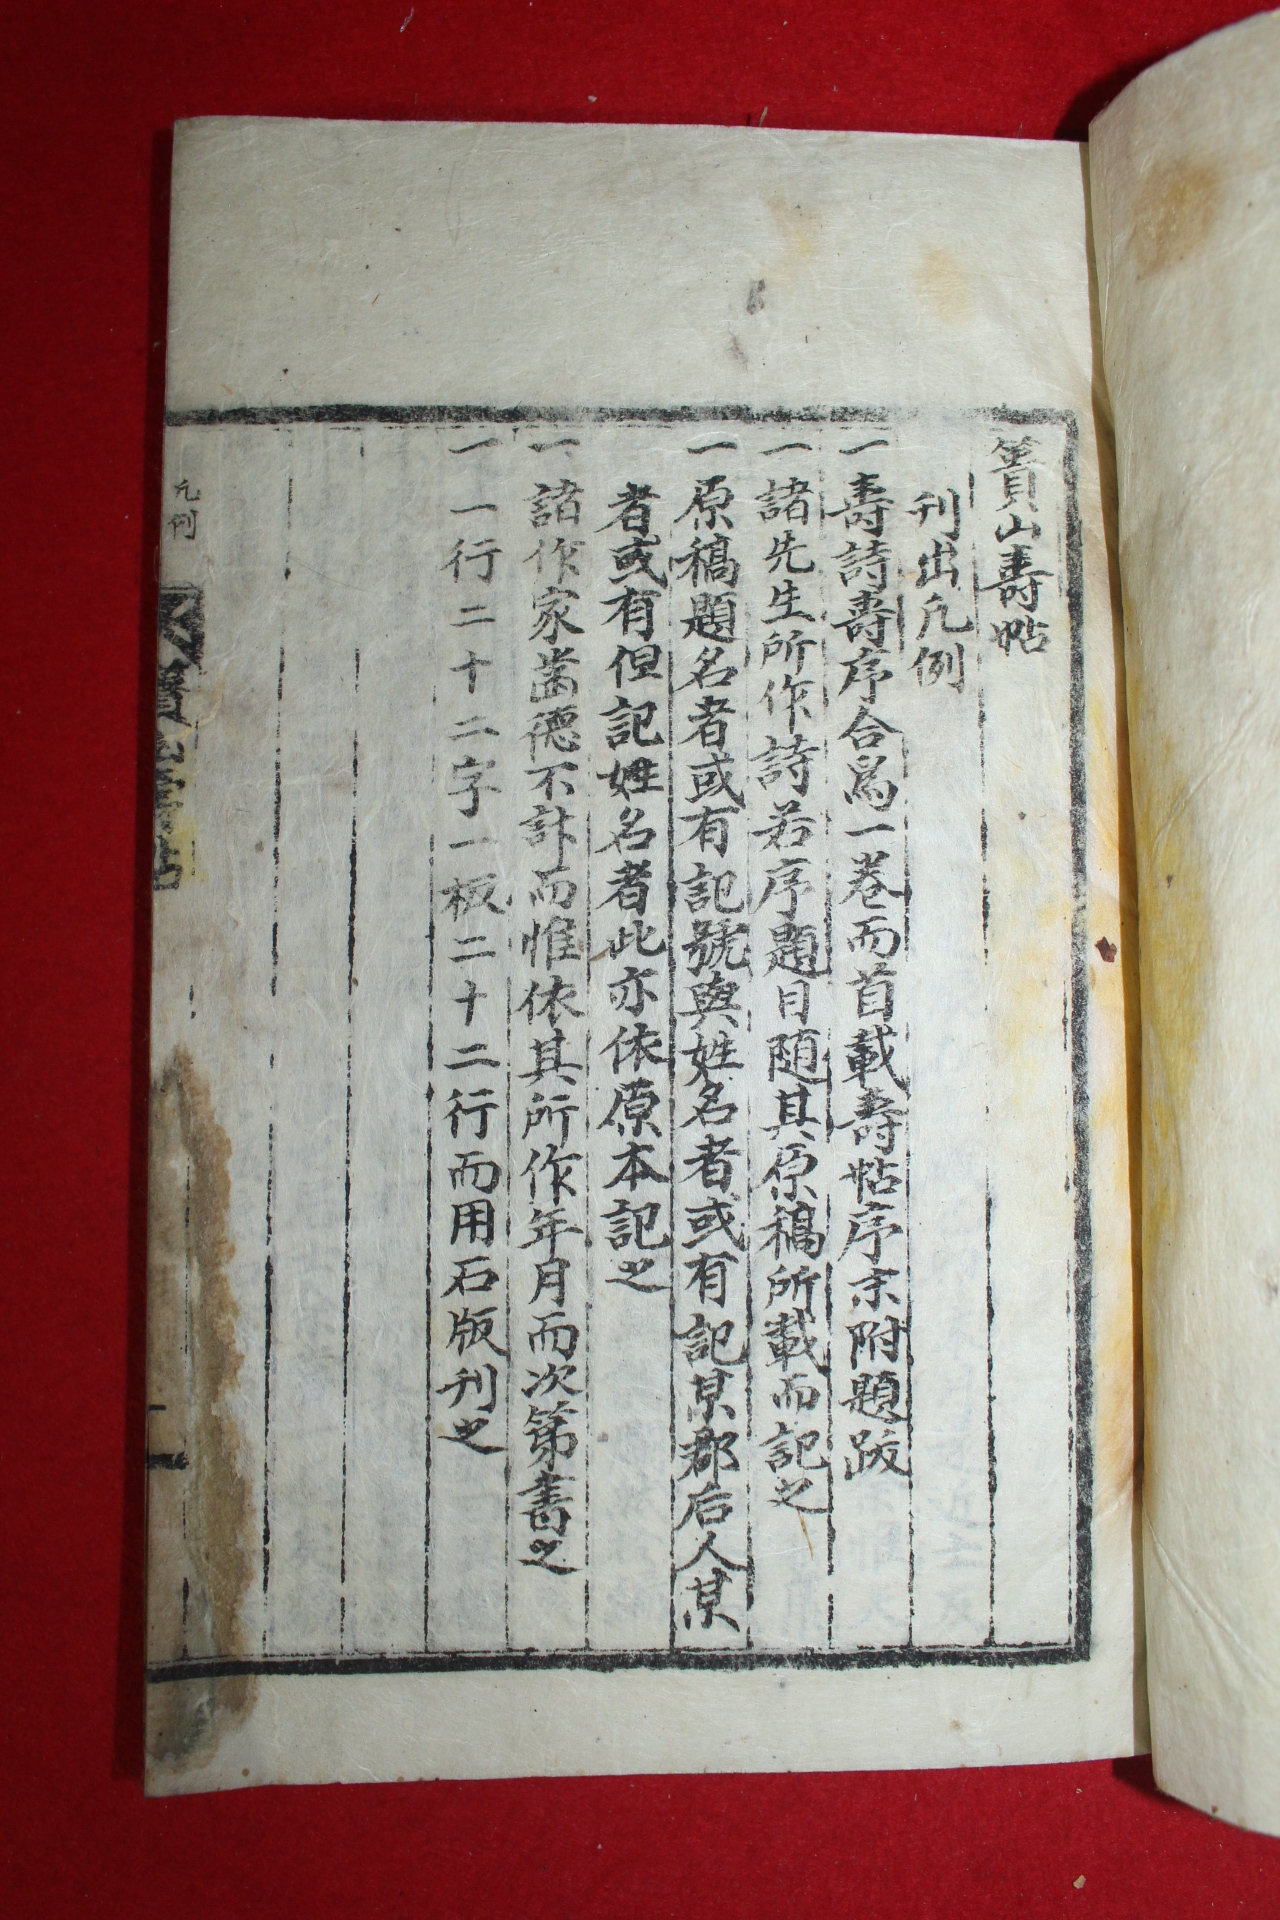 篔山壽帖
刊出凡例
一壽詩壽序合爲一卷而首載壽帖序末附題跋
一諸先生所作詩若序題目随其原稿所載而記之
一原稿題名者或有記號與姓名者或有記某郡后人某
者或有但記姓名者此亦依原本記之
一諸作家齒德不計而惟依其所作年月而次第書之
一一行二十二字一板二十二行而用石版刊之
凡例
山壽帖
一